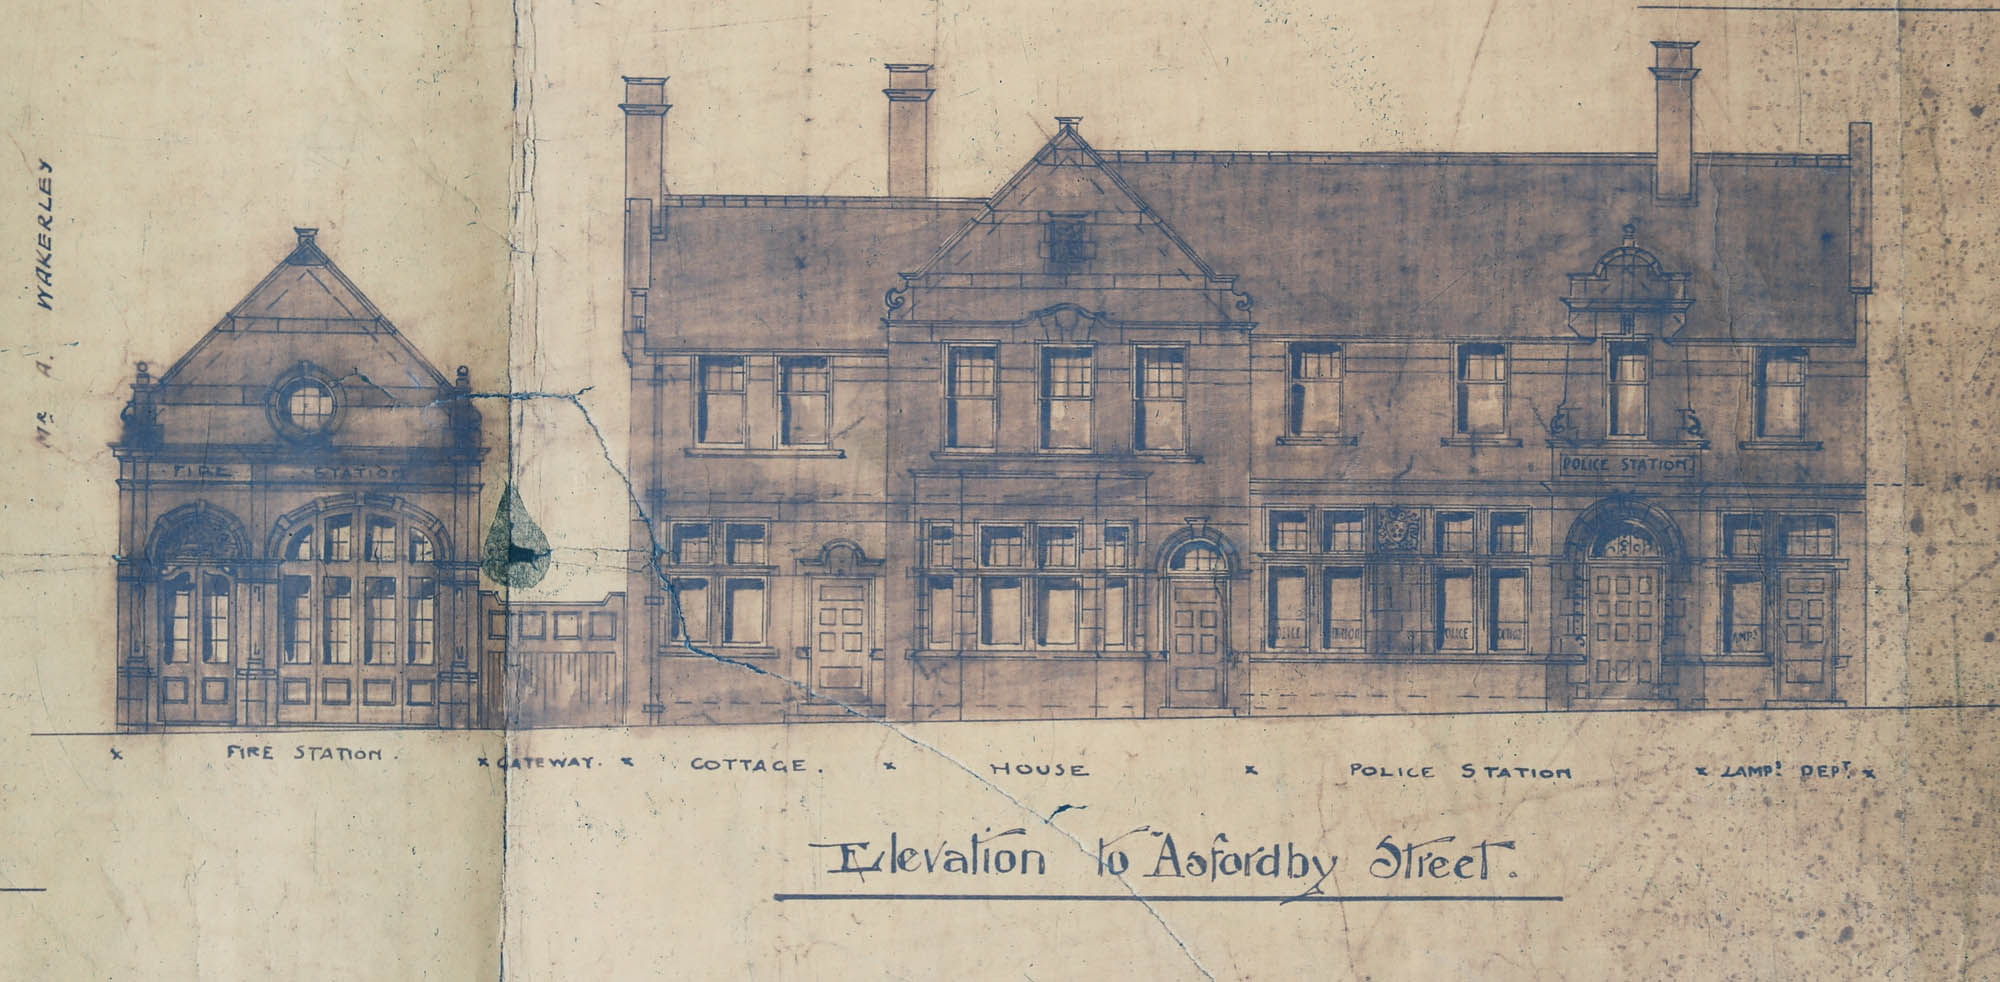 Mr A. WAKERLEY
FIRE STATION
POLICE STATION
POLICE STATION POLICE STATION
LAMPS
x FIRE STATION. x GATEWAY. x COTTAGE. x HOUSE x POLICE STATION x LAMPS DEPT. x
Elevation to Asfordby Street.